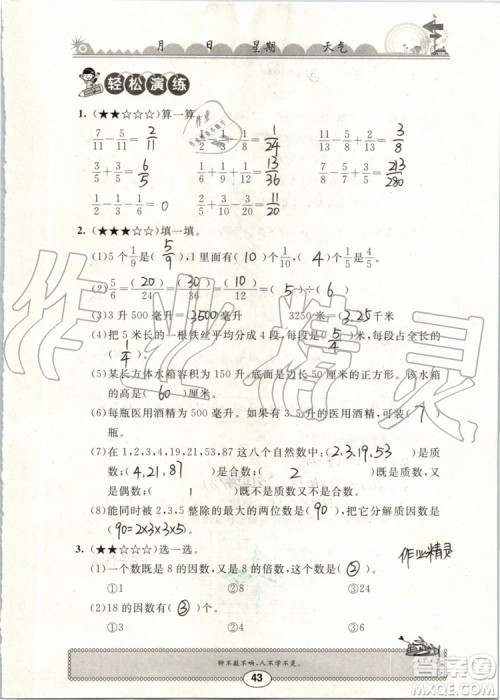 月 日 星期 天气
轻松演练
1. (★★☆☆☆)算一算。
7/11-5/11=2/11 1/6-1/8=1/24 11/16+5/8-15/16=3/8
3/5+3/5=6/5 1/6+1/9+1/12=13/36 5/8+1/7-1/140=213/280
1/2-1/3-1/6=0
2. (★★★☆☆)填一填。
(1)5个1/9是(5/9),1里面有(10)个1/10,(4)个1/5是4/5。
(2)5/6=(20)/24=(30)/36=(10)/12=(5)÷(6)
(3)3升500毫升=3500毫升 3250米=3.25千米
(4)把5米长的一根铁丝平均分成4段,每段是(5/4)米,每段占全长的
(1/4)。
(5)某长方体水箱容积为150升,底面是边长50厘米的正方形。该水箱
的高是(60)厘米。
(6)每瓶医用酒精为500毫升。如果有3.5升的医用酒精,可装(7)
瓶。
(7)在1,2,3,4,19,21,53,87这八个自然数中:(2,3,19,53)是质
数;(4,21,87)是合数;(2)既是质数又
是偶数;(1)既不是质数又不是合数。
(8)能同时被2,3,5整除的最大的两位数是(90),把它分解质因数是
(90=2×3×3×5)。
3. (★★☆☆☆)选一选。
(1)一个数既是8的因数,又是8的倍数,这个数是(②)。
①1 ②8 ③24
(2)18的因数有(③)个。
①3 ②4 ③6
作业精灵
钟不敲不响,人不学不灵。
43
作业精灵
答案圈
MXQE.COM